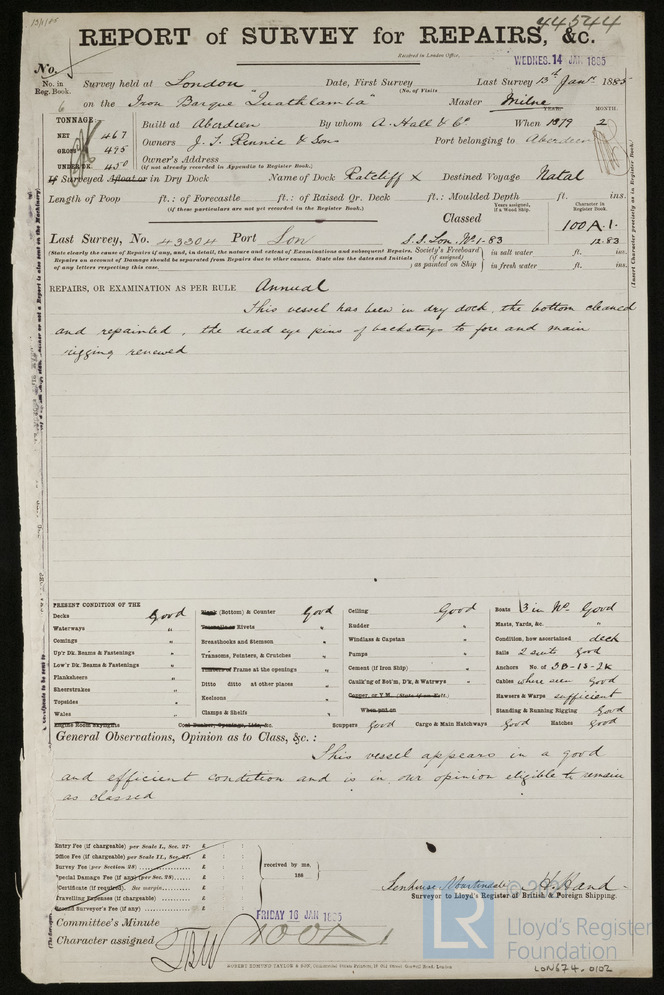 13/1/85
44544
REPORT of SURVEY for REPAIRS, &c.
Received in London Office, WEDNES. 14 JAN. 1885
No.
No. in Reg. Book. Survey held at London Date, First Survey (No. of Visits Last Survey 13th Jany. 1885
6 on the Iron Barque "Quathlamba" Master Milne
YEAR. MONTH.
TONNAGE Built at Aberdeen By whom A. Hall & Co When 1879 2
NET 467
GROSS 495 Owners J. T. Rennie & Sons Port belonging to Aberdeen
UNDER DK. 450 Owner's Address
(If not already recorded in Appendix to Register Book.)
If Surveyed Afloat or in Dry Dock Name of Dock Ratcliff X Destined Voyage Natal
Length of Poop ft.: of Forecastle ft.: of Raised Qr. Deck ft.: Moulded Depth ft. ins.
(If these particulars are not yet recorded in the Register Book.)
Years assigned, if a Wood Ship. Character in Register Book.
Classed 100A.1.
Last Survey, No. 43304 Port Lon S.S. Lon. No.1-83 12.83
(State clearly the cause of Repairs if any, and, in detail, the nature and extent of Examinations and subsequent Repairs.
Repairs on account of Damage should be separated from Repairs due to other causes. State also the dates and Initials
of any letters respecting this case.
Society's Freeboard (if assigned) as painted on Ship in salt water ft. ins.
in fresh water ft. ins.
REPAIRS, OR EXAMINATION AS PER RULE Annual
This vessel has been in dry dock, the bottom cleaned
and repainted, the dead eye pins of backstays to fore and main
rigging renewed
PRESENT CONDITION OF THE
Decks Good
Waterways "
Comings "
Up'r Dk. Beams & Fastenings "
Low'r Dk. Beams & Fastenings "
Planksheers "
Sheerstrakes "
Topsides "
Wales "
Engine Room Skylights
Plank (Bottom) & Counter Good
Treenails or Rivets "
Breasthooks and Stemson "
Transoms, Pointers, & Crutches "
Timbers or Frame at the openings "
Ditto ditto at other places "
Keelsons "
Clamps & Shelfs "
Coal Bunker, Openings, Lids, &c.
Ceiling Good
Rudder "
Windlass & Capstan "
Pumps "
Cement (if Iron Ship) "
Caulk'ng of Bot'm, D'k, & Watrwys "
Copper, or Y.M. (State if on Felt)
When put on
Scuppers Good Cargo & Main Hatchways Good Hatches Good
Boats 3 in No. Good
Masts, Yards, &c. "
Condition, how ascertained deck
Sails 2 suits good
Anchors No. of 3B-1S-2K
Cables where seen Good
Hawsers & Warps sufficient
Standing & Running Rigging Good
General Observations, Opinion as to Class, &c.:
This vessel appears in a good
and efficient condition and is in our opinion eligible to remain
as classed
Entry Fee (if chargeable) per Scale I., Sec. 27 £ : :
Office Fee (if chargeable) per Scale II., Sec. 27 £ : :
Survey Fee (per Section 28) £ : :
Special Damage Fee (if any) (per Sec. 28) £ : :
Certificate (if required). See margin £ : :
Travelling Expenses (if chargeable) £ : :
Second Surveyor's Fee (if any) £ : :
received by me.
188
Senhouse Martindale H. Hand
Surveyor to Lloyd's Register of British & Foreign Shipping.
Committee's Minute FRIDAY 16 JAN 1885
Character assigned 100A1
LR
Lloyd's Register
Foundation
LON674-0102